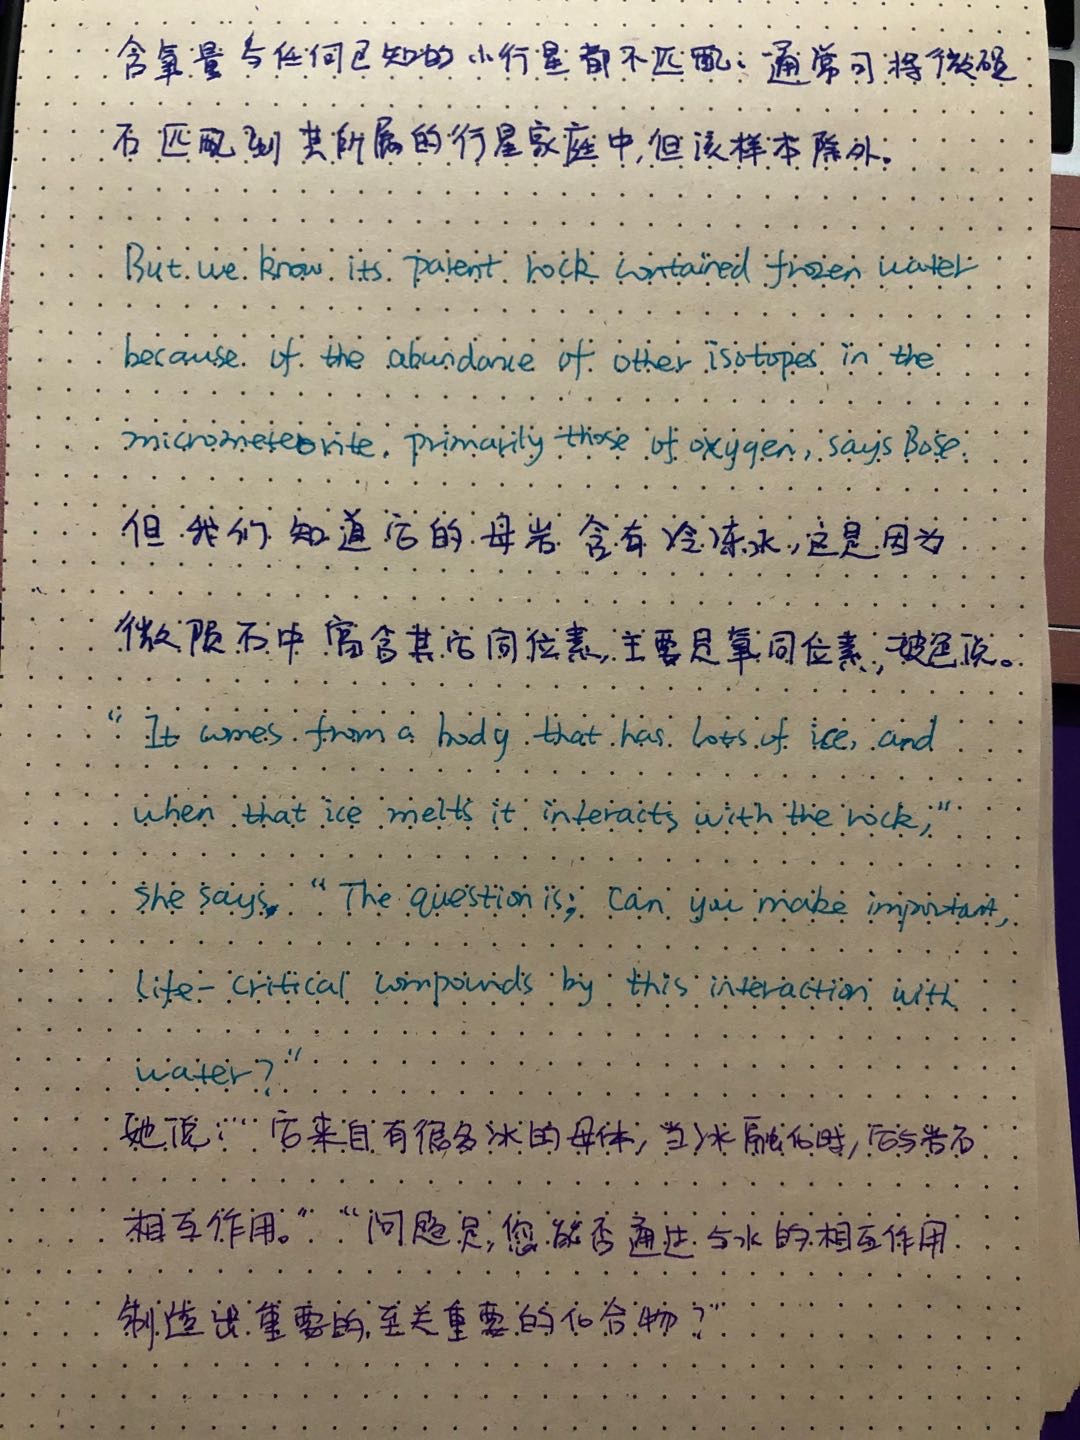 含氧量与任何已知的小行星都不匹配：通常可将微陨
石匹配到其所属的行星家庭中，但该样本除外。
But we know its parent rock contained frozen water
because of the abundance of other isotopes in the
micrometeorite, primarily those of oxygen, says Bose.
但我们知道它的母岩含有冷冻水，这是因为
微陨石中富含其它同位素，主要是氧同位素，玻色说。
“It comes from a body that has lots of ice, and
when that ice melts it interacts with the rock,”
she says. “The question is; Can you make important,
life-critical compounds by this interaction with
water?”
她说：“它来自有很多冰的母体，当冰融化时，它与岩石
相互作用。”“问题是，您能否通过与水的相互作用
制造出重要的至关重要的化合物？”